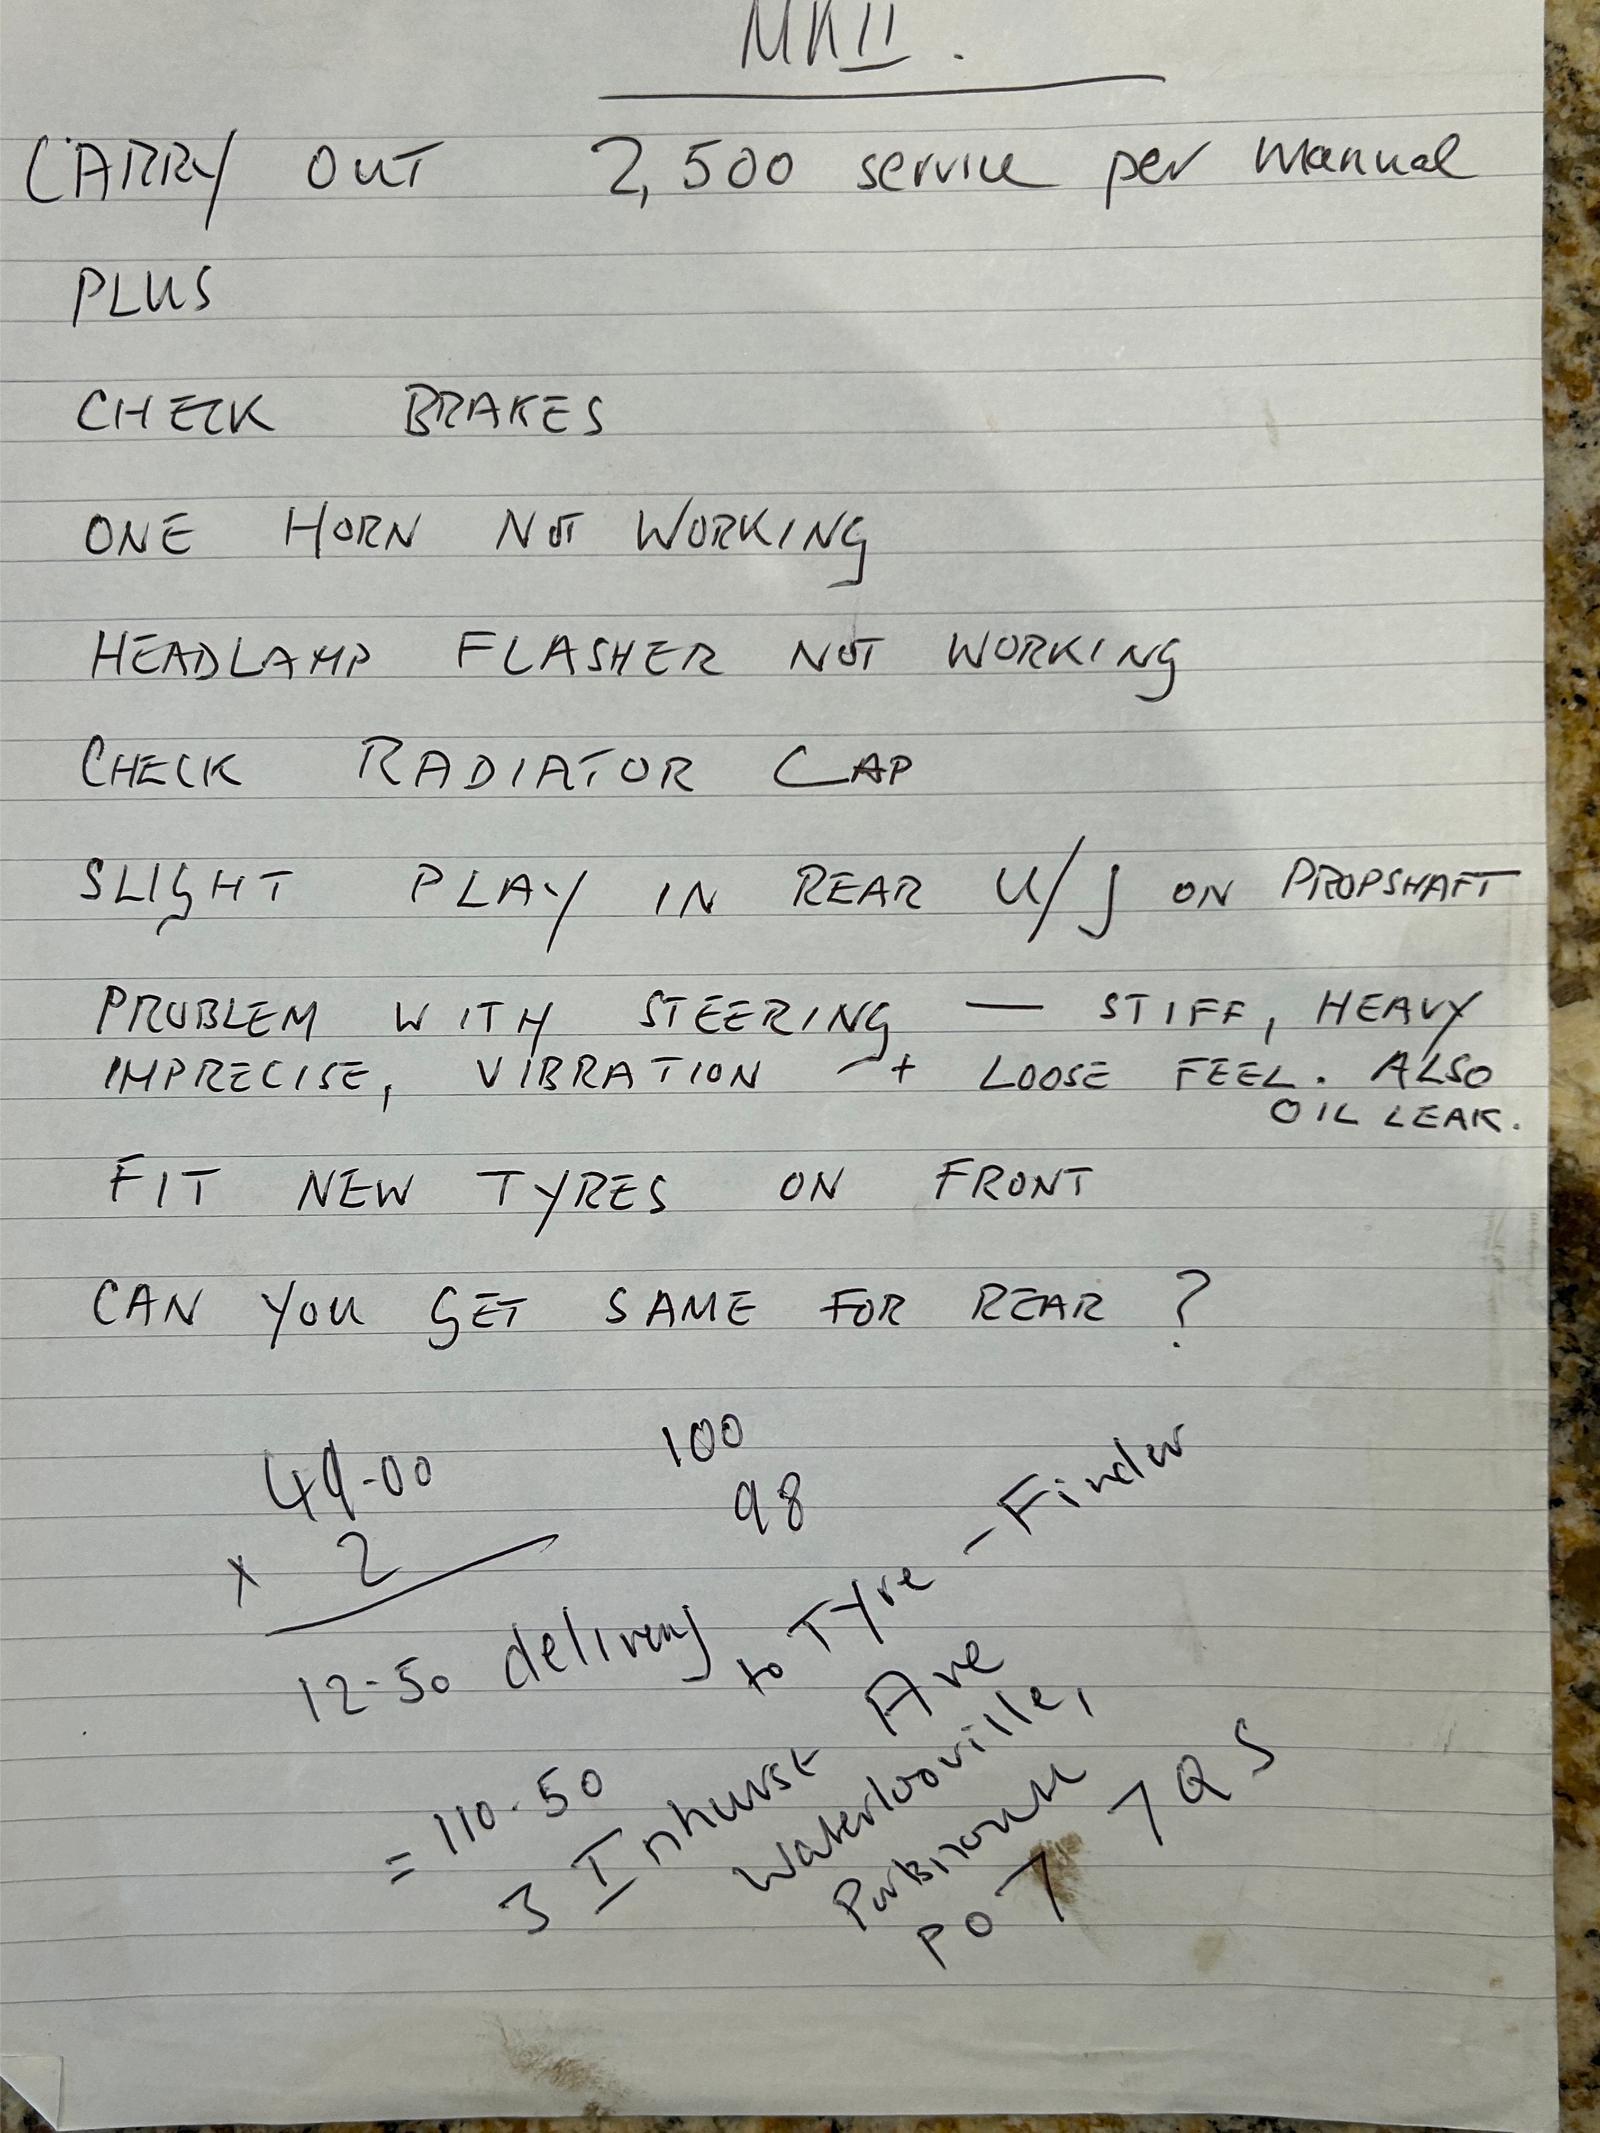 MKII.
CARRY OUT 2,500 service per manual
PLUS
CHECK BRAKES
ONE HORN NOT WORKING
HEADLAMP FLASHER NOT WORKING
CHECK RADIATOR CAP
SLIGHT PLAY IN REAR U/J ON PROPSHAFT
PROBLEM WITH STEERING — STIFF, HEAVY
IMPRECISE, VIBRATION + LOOSE FEEL. ALSO
OIL LEAK.
FIT NEW TYRES ON FRONT
CAN YOU GET SAME FOR REAR ?
49-00 100
x 2 98
12-50 delivery to Tyre-Finder
= 110-50
3 Inhurst Ave
Waterlooville,
Portsmouth
PO7 7QS